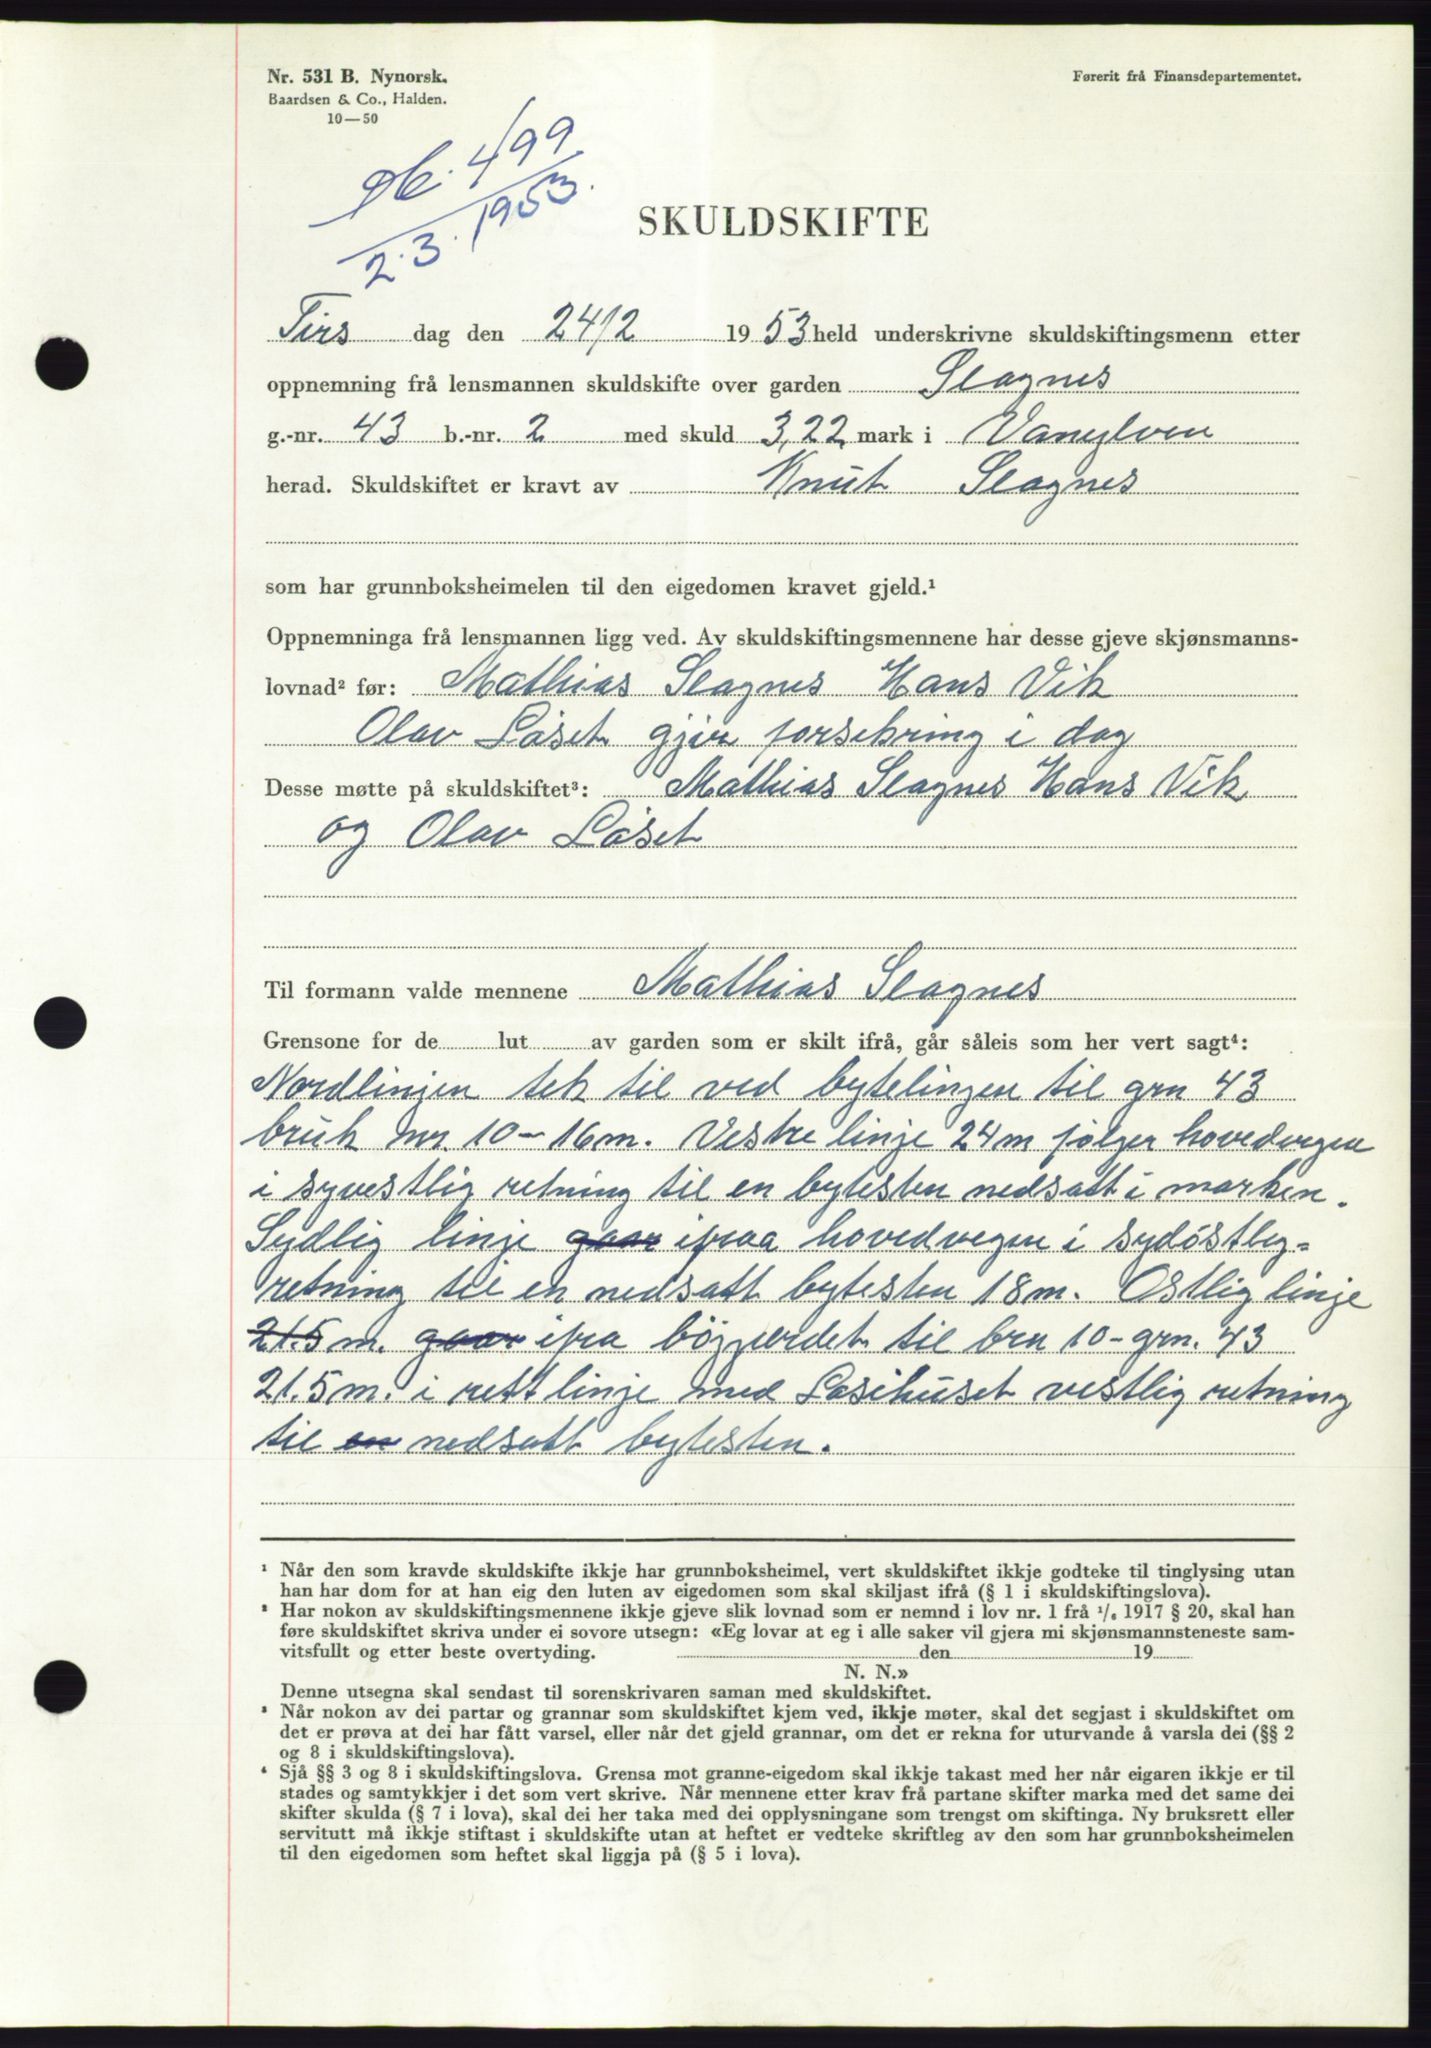 Nr. 531 B. Nynorsk.
Baardsen & Co., Halden.
10—50
Førerit frå Finansdepartementet.
db. 499
2.3.1953.
SKULDSKIFTE
Tirs dag den 24/2 1953 held underskrivne skuldskiftingsmenn etter
oppnemning frå lensmannen skuldskifte over garden Slagnes
g.-nr. 43 b.-nr. 2 med skuld 3,22 mark i Vanylven
herad. Skuldskiftet er kravt av Knut Slagnes
som har grunnboksheimelen til den eigedomen kravet gjeld.¹
Oppnemninga frå lensmannen ligg ved. Av skuldskiftingsmennene har desse gjeve skjønsmanns-
lovnad² før: Mathias Slagnes Hans Vik
Olav Låset gjer forsekring i dag
Desse møtte på skuldskiftet³: Mathias Slagnes Hans Vik
og Olav Låset
Til formann valde mennene Mathias Slagnes
Grensone for de lut av garden som er skilt ifrå, går såleis som her vert sagt⁴:
Nordlinjen tek til ved bytelingen til grn 43
bruk nr. 10 – 16m. Vestre linje 24m følger hovedvegen
i syvestlig retning til en bytesten nedsatt i marken.
Sydlig linje gaar ifraa hovedvegen i sydöstleg=
retning til en nedsatt bytesten 18m. Ostlig linje
21.5m. gaar ifra böjgjerdet til brn 10 – grn. 43
21.5m. i rett linje med Løsihuset vestlig retning
til en nedsatt bytesten.
¹ Når den som kravde skuldskifte ikkje har grunnboksheimel, vert skuldskiftet ikkje godteke til tinglysing utan
han har dom for at han eig den luten av eigedomen som skal skiljast ifrå (§ 1 i skuldskiftingslova).
² Har nokon av skuldskiftingsmennene ikkje gjeve slik lovnad som er nemnd i lov nr. 1 frå ¹/₆ 1917 § 20, skal han
føre skuldskiftet skriva under ei sovore utsegn: «Eg lovar at eg i alle saker vil gjera mi skjønsmannsteneste sam-
vitsfullt og etter beste overtyding. den 19
N. N.»
Denne utsegna skal sendast til sorenskrivaren saman med skuldskiftet.
³ Når nokon av dei partar og grannar som skuldskiftet kjem ved, ikkje møter, skal det segjast i skuldskiftet om
det er prøva at dei har fått varsel, eller når det gjeld grannar, om det er rekna for uturvande å varsla dei (§§ 2
og 8 i skuldskiftingslova).
⁴ Sjå §§ 3 og 8 i skuldskiftingslova. Grensa mot granne-eigedom skal ikkje takast med her når eigaren ikkje er til
stades og samtykkjer i det som vert skrive. Når mennene etter krav frå partane skifter marka med det same dei
skifter skulda (§ 7 i lova), skal dei her taka med dei opplysningane som trengst om skiftinga. Ny bruksrett eller
servitutt må ikkje stiftast i skuldskifte utan at heftet er vedteke skriftleg av den som har grunnboksheimelen
til den eigedomen som heftet skal liggja på (§ 5 i lova).